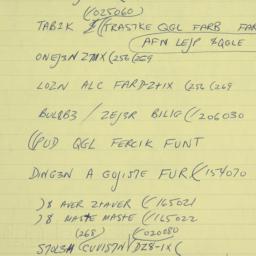 (/025060)
TABIK & (TRASTKE QGL FARB FAR
(AFN LEJP ZQGLE
ONEJ3N Z7MX (256 (259
LOZN ALC FARD-2+1X (256 (269
BULRB3 / ZEJ3R BILIG (/206030
(PUD QGL FERCIK FUNT
DING3N A GOJIS7E FUR (/154070
)8 AVER Z+AVER (/165021
)8 MASTE MASTE (/165022
(268) (/020080
S7QL3H (CUVIS7N / DZ8-1X (